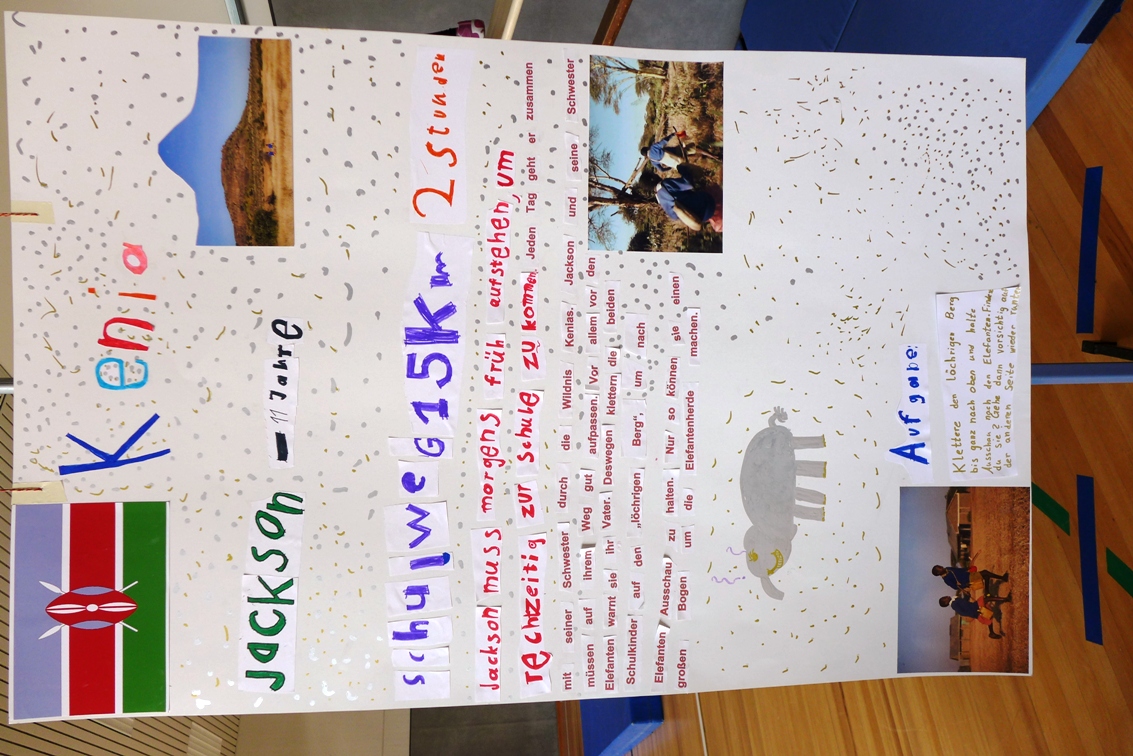 Kenia
Jackson – 11 Jahre
schulweG 15 Km 2 Stunden
Jackson muss morgens früh aufstehen, um
rechtzeitig zur schule zu kommen. Jeden Tag geht er zusammen
mit seiner Schwester durch die Wildnis Kenias. Jackson und seine Schwester
müssen auf ihrem Weg gut aufpassen. Vor allem vor den
Elefanten warnt sie ihr Vater. Deswegen klettern die beiden
Schulkinder auf den „löchrigen Berg“, um nach
Elefanten Ausschau zu halten. Nur so können sie einen
großen Bogen um die Elefantenherde machen.
Aufgabe:
Klettere den löchrigen Berg
bis ganz nach oben und halte
Ausschau nach den Elefanten.
du sie? Gehe dann vorsichtig auf
der anderen Seite wieder